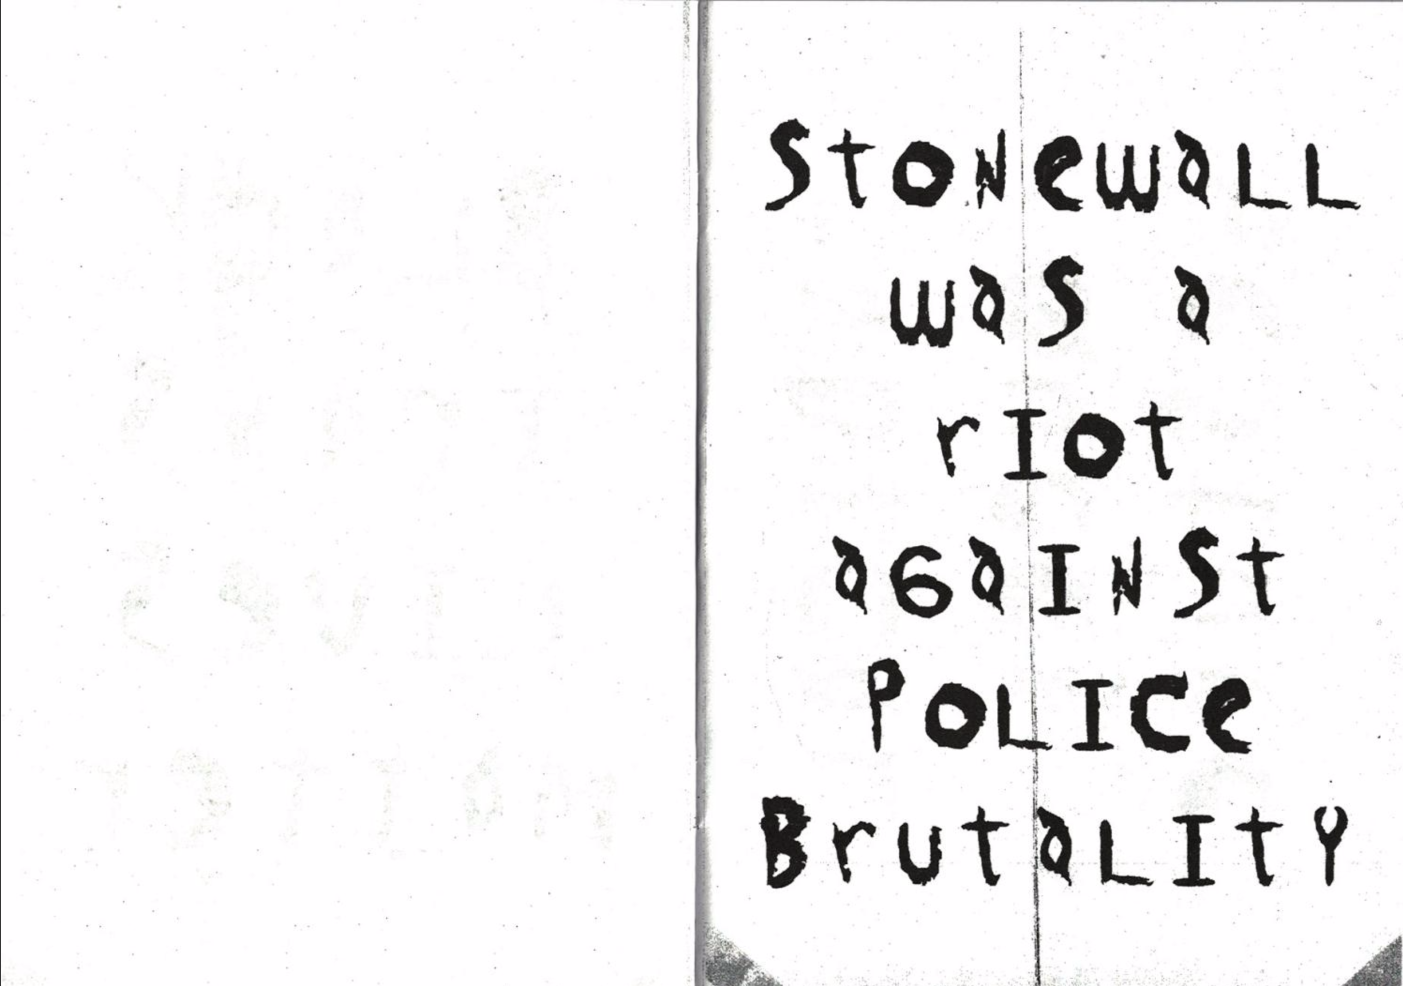 Stonewall
was a
riot
against
Police
Brutality